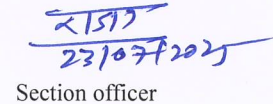 23/07/2025
Section officer